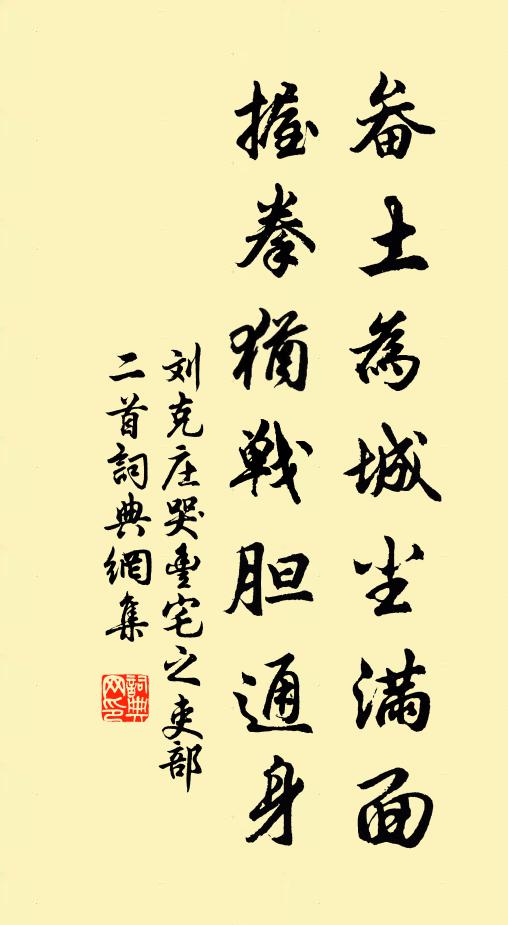 畚土為城尘满面
握拳猶戦胆通身
刘克庄哭豊宅之吏部
二首詞典網集
詞典网印